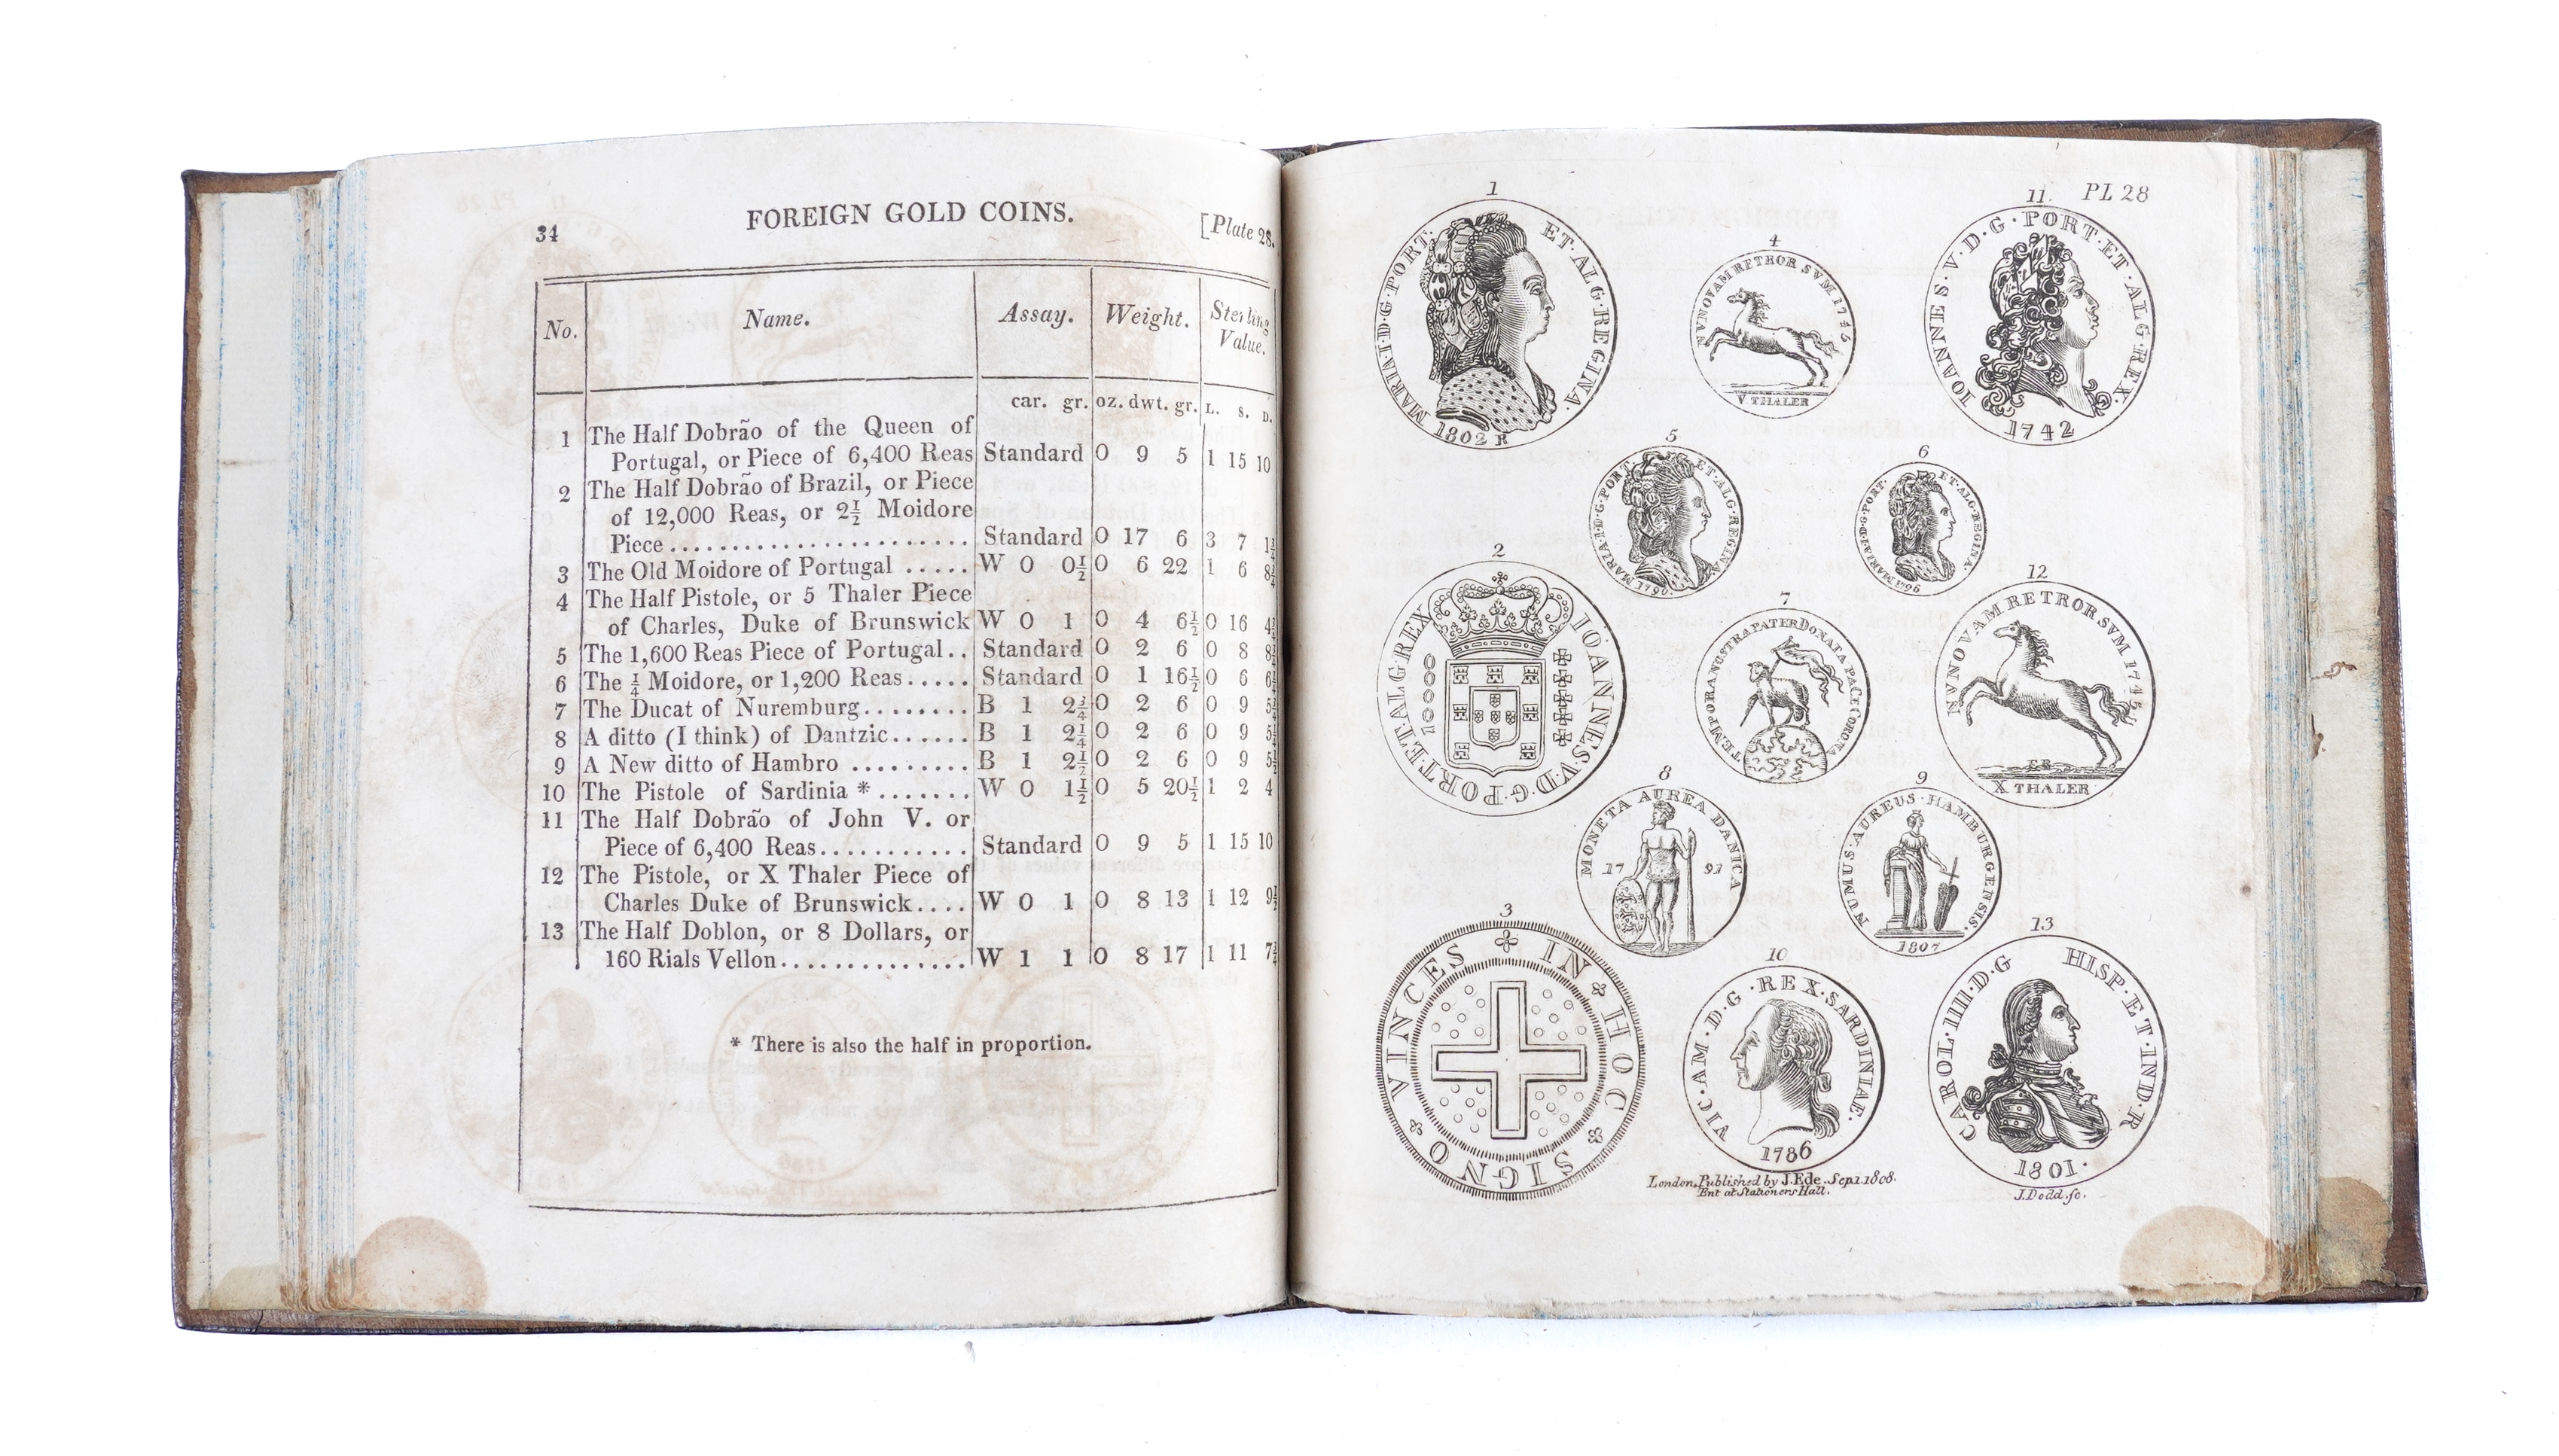 34
FOREIGN GOLD COINS.
[Plate 28.
No. Name. Assay. Weight. Sterling Value.
car. gr. oz. dwt. gr. L. S. D.
1 The Half Dobrão of the Queen of
Portugal, or Piece of 6,400 Reas Standard 0 9 5 1 15 10
2 The Half Dobrão of Brazil, or Piece
of 12,000 Reas, or 2½ Moidore
Piece........................ Standard 0 17 6 3 7 1¾
3 The Old Moidore of Portugal ..... W 0 0½ 0 6 22 1 6 8¾
4 The Half Pistole, or 5 Thaler Piece
of Charles, Duke of Brunswick W 0 1 0 4 6½ 0 16 4¾
5 The 1,600 Reas Piece of Portugal.. Standard 0 2 6 0 8 8¾
6 The ¼ Moidore, or 1,200 Reas..... Standard 0 1 16½ 0 6 6½
7 The Ducat of Nuremburg........ B 1 2¾ 0 2 6 0 9 5¼
8 A ditto (I think) of Dantzic...... B 1 2¼ 0 2 6 0 9 5¼
9 A New ditto of Hambro ......... B 1 2½ 0 2 6 0 9 5½
10 The Pistole of Sardinia *....... W 0 1½ 0 5 20½ 1 2 4
11 The Half Dobrão of John V. or
Piece of 6,400 Reas........... Standard 0 9 5 1 15 10
12 The Pistole, or X Thaler Piece of
Charles Duke of Brunswick.... W 0 1 0 8 13 1 12 9½
13 The Half Doblon, or 8 Dollars, or
160 Rials Vellon............... W 1 1 0 8 17 1 11 7¾
* There is also the half in proportion.
PL 28
1
MARIA·I·D·G·PORT· ET·ALG·REGINA·
1802 R
4
NUNOVAM RETROR SVM 1745
V THALER
11
IOANNES·V·D·G·PORT·ET·ALG·REX·
1742
5
MARIA·I·D·G·PORT· ET·ALG·REGINA
1790·
6
MARIA·I·D·G·PORT· ET·ALG·REGINA·
2
IOANNES·V·D·G·PORT·ET·ALG·REX
10000
7
TEMPORA NOSTRA PATER DONATA PACE CORONA
12
NVNOVAM RETROR SVM 1745
EK
X THALER
8
MONETA AUREA DANICA
17 91
9
NUMUS·AUREUS·HAMBURGENSIS·
1807
3
IN HOC SIGNO VINCES
10
VIC·AM·D·G·REX·SARDINIAE·
1786
13
CAROL·IIII·D·G HISP·ET·IND·R
1801·
London, Published by J. Ede. Sep 1. 1808.
Ent at Stationers Hall.
J. Dodd. sc.